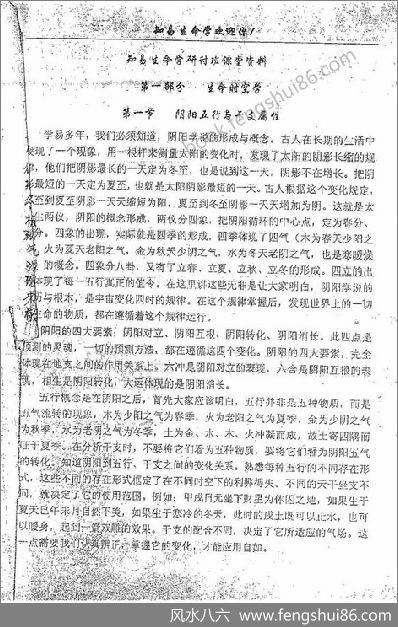 知易生命学
知易生命学研讨班课堂资料
第一部分 生命时空学
第一节 阴阳五行与干支属性
学易多年，我们必须知道，阴阳学说的形成与概念，古人在长期的生活中
发现了一个现象，用一根杆来测量太阳的变化时，发现了太阳的阴影长缩的规
律，他们把阴影最长的一天定为冬至，也是说到这一天，阴影不在增长。把阴
影最短的一天定为夏至，也就是太阳阴影最短的一天。古人根据这个变化规定，
冬至到夏至阴影一天天缩短为阳，夏至到冬至阴影一天天增加为阴。这就是太
仪，阴阳的概念形成。两仪分四象，把阴阳循环的中心点，定为春分、
分。四象的出现，实际就是四季的形成，四季体现了四气（木为春天少阳之
火为夏天老阳之气，金为秋天少阴之气，水为冬天老阴之气，也是寒暖燥
的概念，四象分八卦，又有了立春、立夏、立秋、立冬的形成。四立的出
体现了每一五行真正的当令，在这里讲这些无非是让大家明白，阴阳学说的
与根本，是宇宙变化四时的规律。在这个规律掌握后，发现世上的一切
生命的物质，都在遵循着这个规律运行。
阴阳的四大要素：阴阳对立、阴阳互根、阴阳转化、阴阳消长。此四点是
预测的灵魂，一切的预测方法，都在遵循这四个变化。阴阳的四大要素，完全
体现在地支之间的作用关系上。六冲是阴阳对立的表现，六合是阴阳互根的表
现，相生是阴阳转化，大运体现的是阴阳消长。
五行概念是在阴阳之后，首先大家应该明白，五行并非是五种物质，而是
五气流转的现象，木为少阳之气为春季，火为老阳之气为夏季，金为少阴之气
为秋季，水为老阴之气为冬季，土为金、木、水、火冲凝而成，故土寄四隅而
旺于夏季。在分析干支时，不要将它们看为五种物质，要将它们看为阴阳五气
的转化。知道阴阳到五行、干支之间的变化关系。熟悉每种五行的不同存在形
式，这些不同的存在形式拟定了在不同时空下的利弊得失，不同的天干坐支不
同，就决定了它的使用范围。例如：甲戌月无坐下财星为休囚之地，如果生于
夏天巳午未月自救不美，如果生于悲冷的冬天，此时的戌土既可以止水，也可
以暖身，起到一箭双雕的效果。干支的配合不同，决定了它所适应的气场。这
一点需要我们认真辨正，掌握它的变化，才能应用自如。
www.fengshui86.com
风水八六 www.fengshui86.com